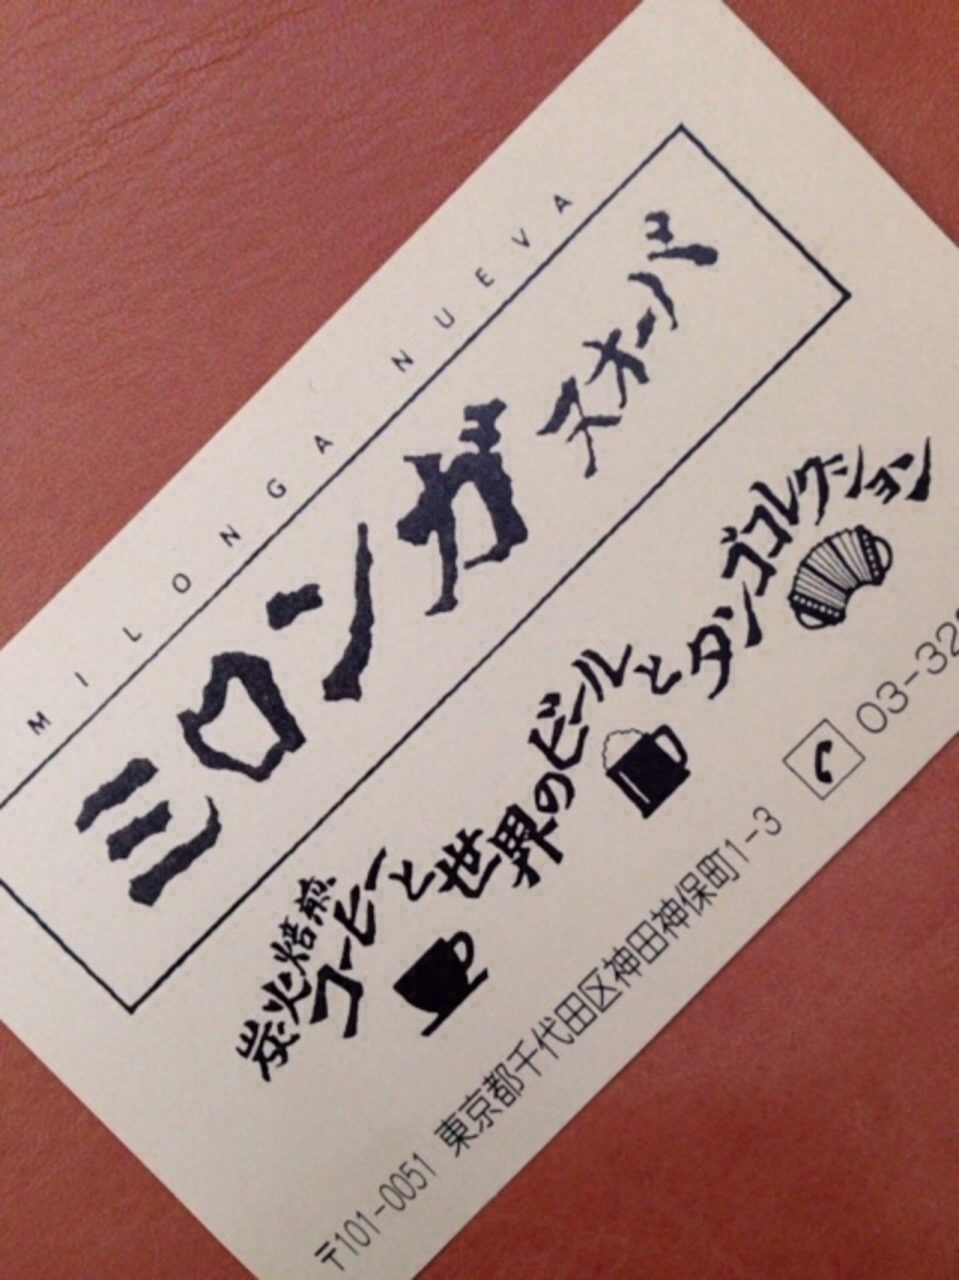 MILONGA NUEVA
ミロンガ ヌオーバ
炭火焙煎コーヒーと世界のビールとタンゴコレクション
〒101-0051 東京都千代田区神田神保町1-3
03-32